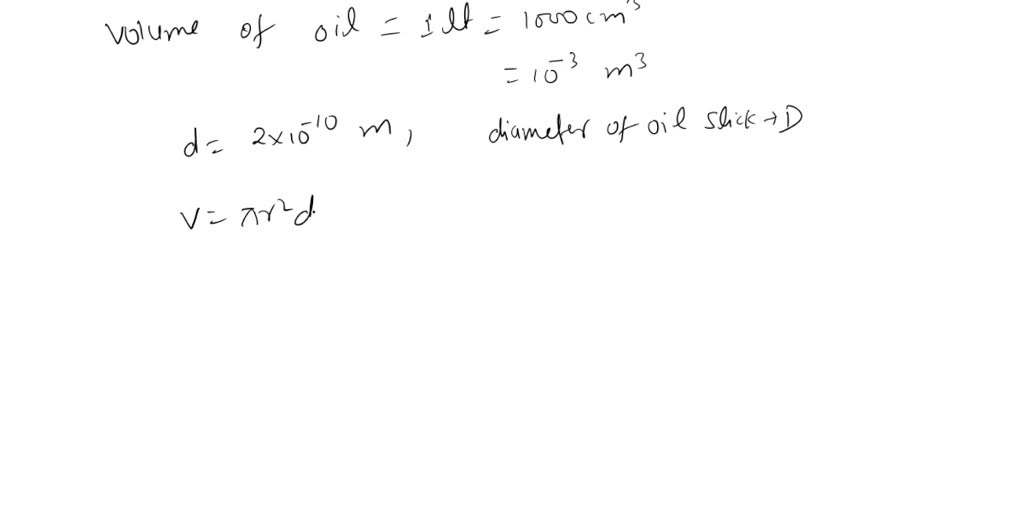 Volume of oil = 1 lt = 1000 cm³
= 10⁻³ m³
d = 2×10⁻¹⁰ m, diameter of oil slick → D
V = πr²d